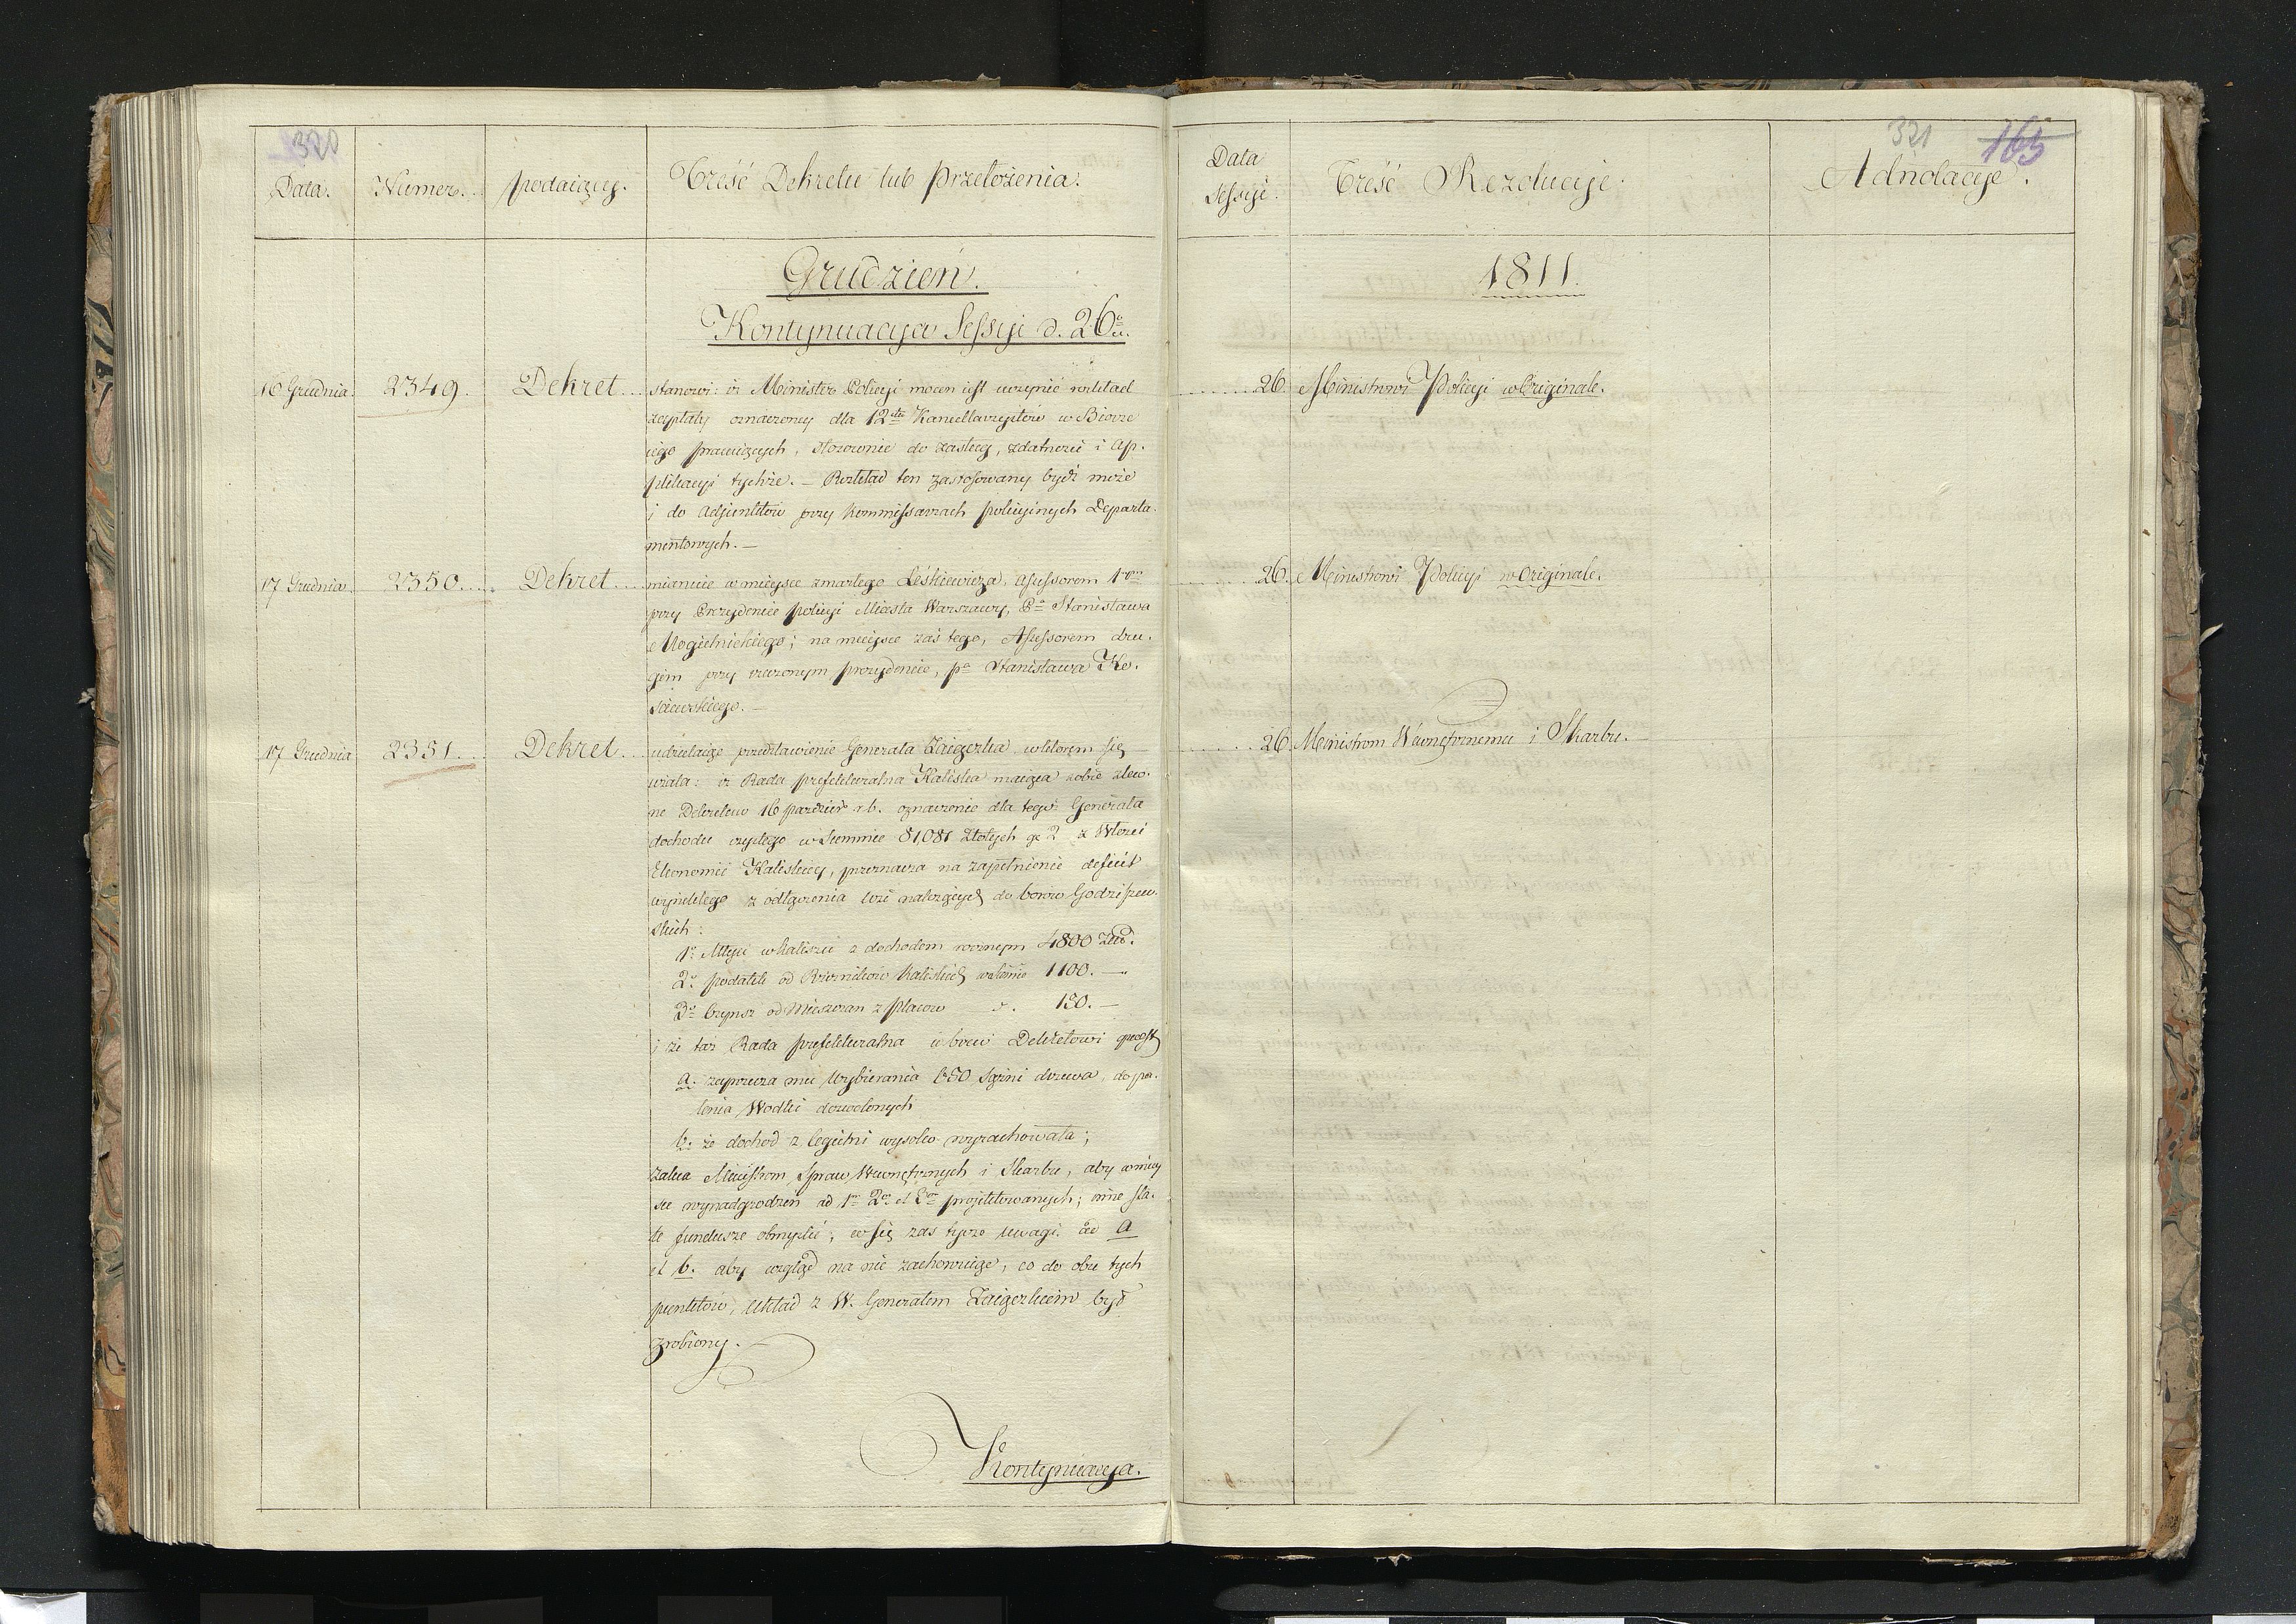 320
Data. Numer. podaiący. Treść Dekretu lub Przełożenia.
Grudzień.
Kontynuacya Sessyi d. 26.
16 Grudnia. 2349. Dekret stanowi: iż Minister Policyi mocen iest uczynić rozkład
zapłaty oznaczoney dla 12stu Kancellarzystów w Biorze
iego pracuiących, stosownie do zasług, zdatności i Ap-
plikacyi tychże. — Rozkład ten zastosowany bydź może
i do Adjunktów przy Kommissarzach policyinych Departa-
mentowych. —
17 Grudnia. 2350. Dekret mianuie w mieysce zmarłego Leśkiewicza, Assessorem 1wszym
przy Prezydencie policyi Miasta Warszawy, Pa Stanisława
Mogielnickiego; na mieysce zaś tego, Assessorem dru-
gim przy rzeczonym prezydencie, pa Stanisława Ko-
sciewskiego. —
17 Grudnia 2351. Dekret udzielaiąc przedstawienie Generała Zaiączka w którem się
użala: iż Rada prefekturalna Kaliska maiąca sobie zleco-
ne Dekretem 16 paździer. r. b. oznaczenie dla tegoż Generała
dochodu czystego w Summie 81,081 Złotych gr 2 z Włości
Ekonomii Kaliskiey, przeznacza na zapełnienie deficit
wynikłego z odłączenia wsi należących do borów Godziszew-
skich:
1o Młyn w Kaliszu z dochodem rocznym 4800 Złł.
2o podatek od Rzeznikow Kaliskich 1100. —
3o Czynsz od Mieszczan z placow 150. —
i że taż Rada prefekturalna wbrew Dekretowi
a. zaprzecza mu wybierania 650 Sążni drzewa, do pa-
lenia Wodki dozwolonych
b. że dochod z Cegielni wysoko wyrachowała;
zaleca Ministrom Spraw Wewnętrznych i Skarbu, aby w miey-
sce wynadgrodzeń ad 1m 2m et 3m projektowanych; inne sta-
łe fundusze obmyślić; co się zas tycze uwagi ad a
et b. aby wzgląd na nie zachowuiąc, co do obu tych
punktów, układ z W. Generałem Zaiączkiem był
zrobiony. —
Kontynuacya.
321 165
Data Sessyi. Treść Rezolucyi. Adnotacye.
1811.
26. Ministrowi Policyi w Originale.
26. Ministrowi Policyi w Originale.
26. Ministrom Wewnętrznemu i Skarbu.